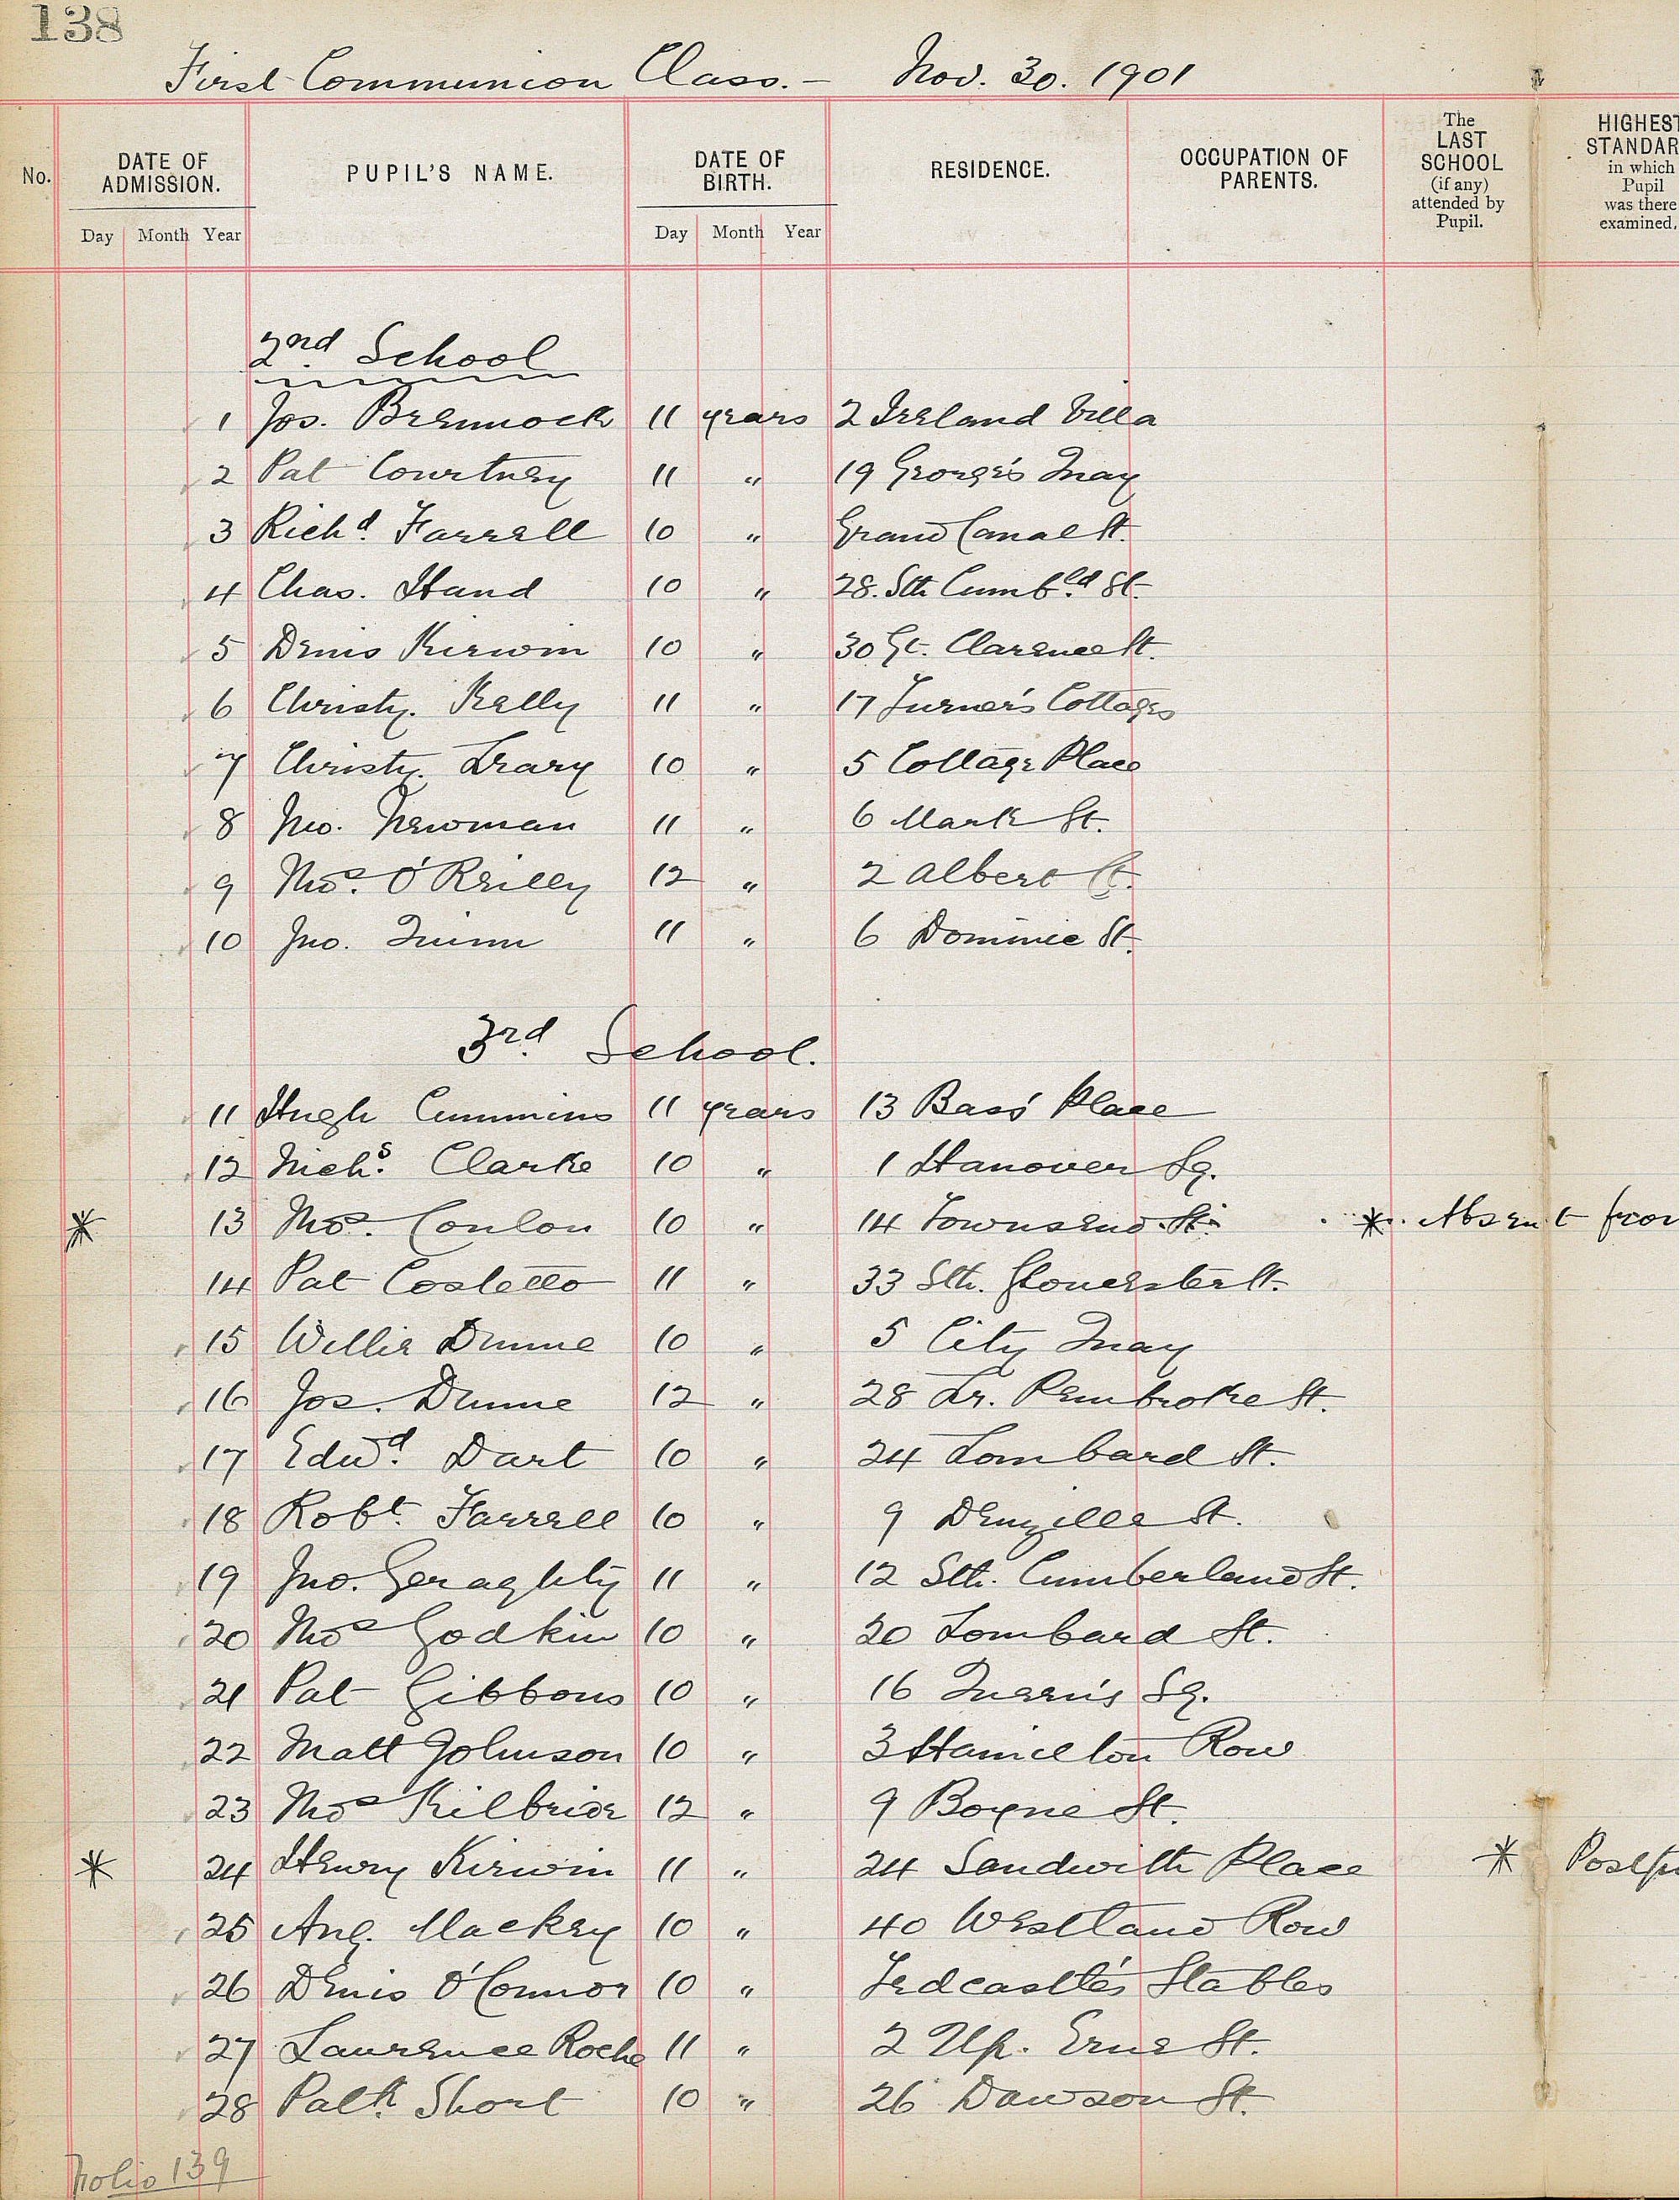 138
First Communion Class. — Nov. 30. 1901
No. DATE OF ADMISSION. PUPIL'S NAME. DATE OF BIRTH. RESIDENCE. OCCUPATION OF PARENTS. The LAST SCHOOL (if any) attended by Pupil. HIGHEST STANDAR in which Pupil was there examined,
Day Month Year Day Month Year
2nd School
1 Jos. Brennock 11 years 2 Ireland Villa
2 Pat Courtney 11 " 19 George's Quay
3 Richd. Farrell 10 " Grand Canal St.
4 Chas. Hand 10 " 28. Sth Cumbld. St.
5 Denis Kirwin 10 " 30 Gt. Clarence St.
6 Christy. Kelly 11 " 17 Turner's Cottages
7 Christy. Leary 10 " 5 Cottage Place
8 Jno. Newman 11 " 6 Mark St.
9 Thos. O'Reilly 12 " 2 Albert Ct.
10 Jno. Quinn 11 " 6 Dominic St.
3rd School.
11 Hugh Cummins 11 years 13 Bass' Place
12 Nichs. Clarke 10 " 1 Hanover Sq.
* 13 Thos. Conlon 10 " 14 Townsend St. * Absent from
14 Pat Costello 11 " 33 Sth. Gloucester St.
15 Willie Dunne 10 " 5 City Quay
16 Jos. Dunne 12 " 28 Lr. Pembroke St.
17 Edwd. Dart 10 " 24 Lombard St.
18 Robt. Farrell 10 " 9 Denzille St.
19 Jno. Geraghty 11 " 12 Sth. Cumberland St.
20 Thos Godkin 10 " 20 Lombard St.
21 Pat Gibbons 10 " 16 Queen's Sq.
22 Matt Johnson 10 " 3 Hamilton Row
23 Thos Kilbride 12 " 9 Boyne St.
* 24 Henry Kirwin 11 " 24 Sandwith Place *
25 Aug. Mackey 10 " 40 Westland Row
26 Denis O'Connor 10 " Tedcastle's Stables
27 Laurence Roche 11 " 2 Up. Erne St.
28 Patk. Short 10 " 26 Dawson St.
Folio 139